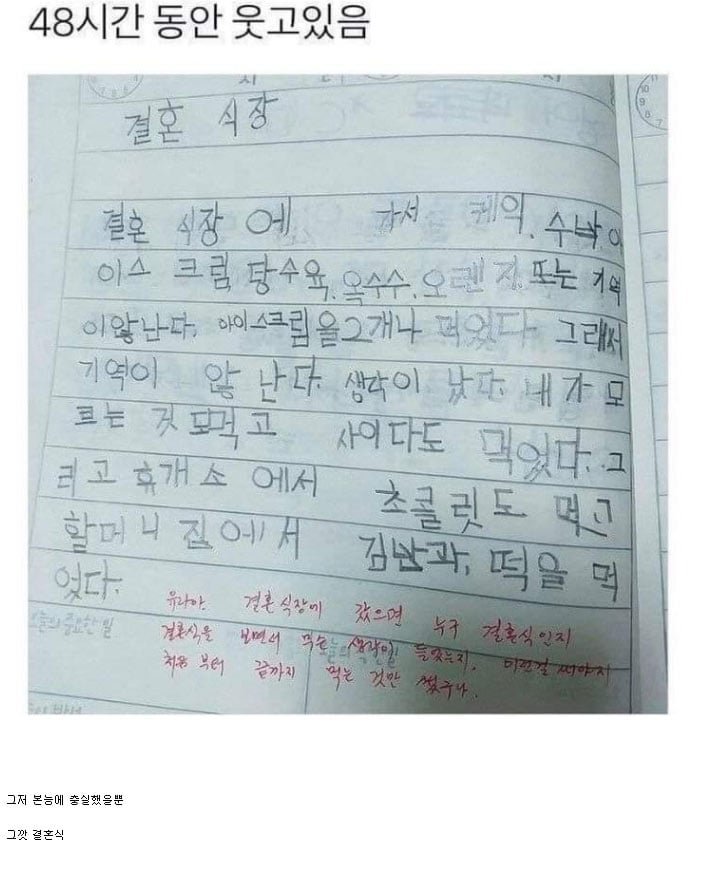 48시간 동안 웃고있음
결혼 식장
결혼 식장에 가서 케익, 수박, 아
이스 크림 탕수육, 옥수수, 오렌지, 또는 기역
이않난다. 아이스크림을 2개나 먹었다. 그래서
기역이 않 난다. 생각이 났다. 내가 모
르는 것 도먹고 사이다도 먹었다. 그
리고 휴개소에서 초콜릿도 먹고
할머니 집에서 김반과, 떡을 먹
었다.
유라야. 결혼식장에 갔으면 누구 결혼식인지
결혼식을 보면서 무슨 생각이 들었는지. 이런걸 써야지
처음 부터 끝까지 먹는 것만 썼구나.
오늘의 중요한 일
그저 본능에 충실했을뿐
그깟 결혼식